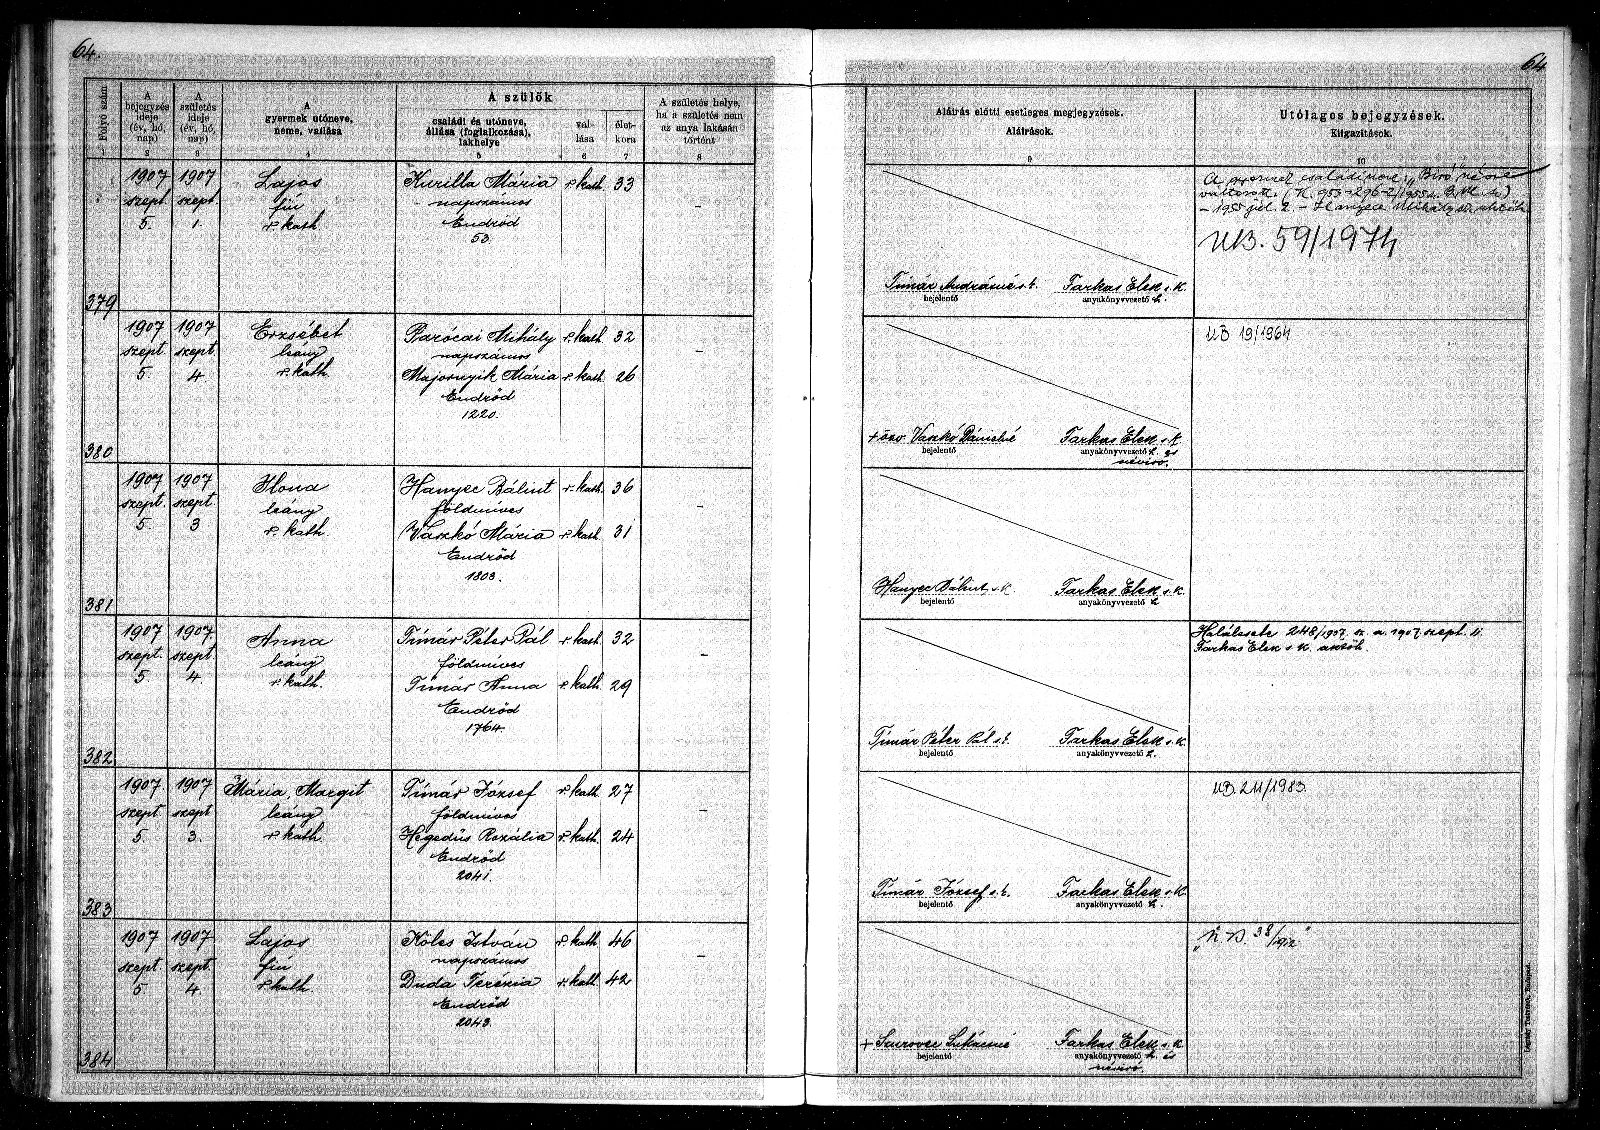 64.
64
Folyó szám
A bejegyzés ideje (év, hó, nap)
A születés ideje (év, hó, nap)
A gyermek utóneve, neme, vallása
A szülők
családi és utóneve, állása (foglalkozása), lakhelye
vallása
életkora
A születés helye, ha a születés nem az anya lakásán történt
Aláírás előtti esetleges megjegyzések.
Aláírások.
Utólagos bejegyzések.
Kiigazítások.
1 2 3 4 5 6 7 8 9 10
379
1907 szept. 5.
1907 szept. 1.
Lajos
fiú
r. kath.
Kurilla Mária r. kath. 33
napszámos
Endrőd
53.
-
Tímár Andrásné s. k.
bejelentő
Farkas Elek s. k.
anyakönyvvezető h.
A gyermek családi neve „Biró" névre
változott. (K. 953-296-2/1955. B. M. h.)
- 1955 júl. 2. - Hanyecz Mihály
UB. 59/1974
380
1907 szept 5.
1907 szept 4
Erzsébet
leány
r. kath.
Parócai Mihály r. kath. 32
napszámos
Majornyik Mária r. kath. 26
Endrőd
1220.
-
+ özv. Vaskó Dánielné
bejelentő
Farkas Elek s. k.
anyakönyvvezető h. és
névíró.
UB 19/1964
381
1907 szept. 5.
1907 szept. 3
Ilona
leány
r. kath.
Hanyec Bálint r. kath. 36
földmíves
Vaszkó Mária r. kath. 31
Endrőd
1803.
-
Hanyec Bálint s. k.
bejelentő
Farkas Elek s. k.
anyakönyvvezető h.
382
1907 szept. 5
1907. szept. 4.
Anna
leány
r. kath.
Tímár Péter Pál r. kath. 32
földmíves
Tímár Anna r. kath. 29
Endrőd
1764.
-
Tímár Péter Pál s. k.
bejelentő
Farkas Elek s. k.
anyakönyvvezető h.
Halálesete 248/1907. sz. a. 1907. szept. 11.
Farkas Elek s. k. akvöh.
383
1907. szept 5.
1907 szept 3.
Mária, Margit
leány
r. kath.
Tímár József r. kath. 27
földmíves
Hegedűs Rozália r. kath. 24
Endrőd
2041.
-
Tímár József s. k.
bejelentő
Farkas Elek s. k.
anyakönyvvezető h.
UB. 211/1983.
384
1907 szept 5
1907 szept. 4.
Lajos
fiú
r. kath.
Köles István r. kath. 46
napszámos
Duda Terézia r. kath. 42
Endrőd
2043.
-
+ Szurovec Lukácsné
bejelentő
Farkas Elek s. k.
anyakönyvvezető h. és
névíró